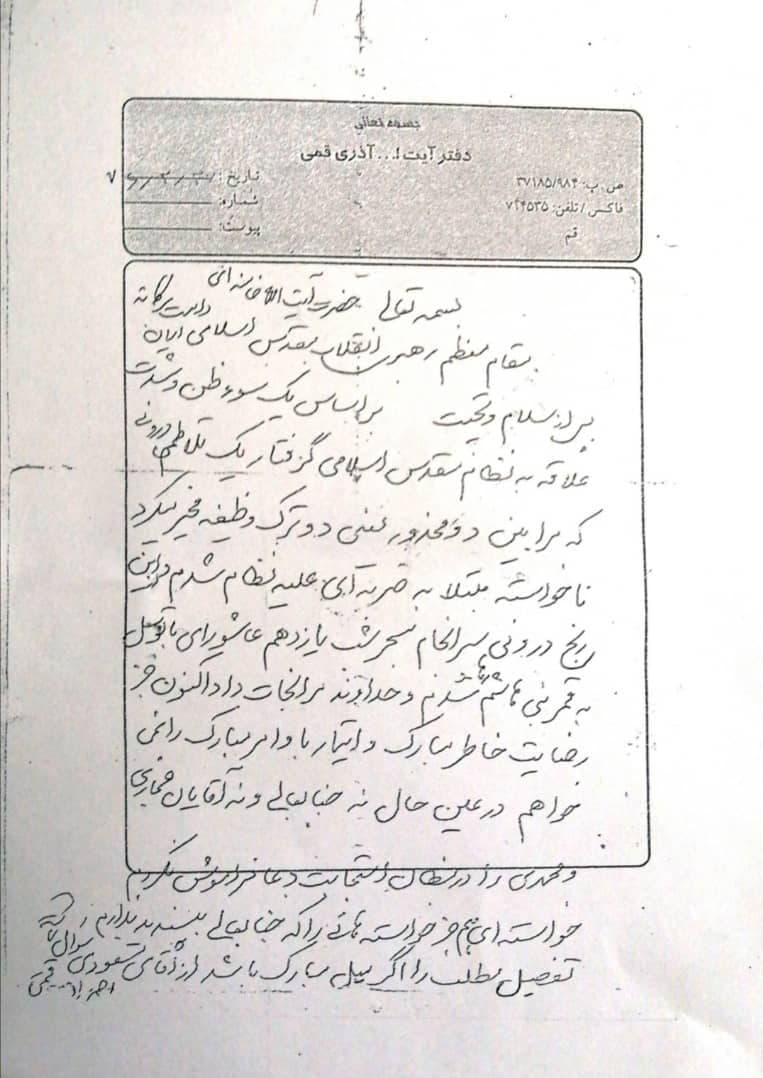 بسمه تعالی
دفتر آیت ا... آذری قمی
ص. ب: ۳۷۱۸۵/۹۸۴
فاکس / تلفن: ۷۴۴۵۳۵
قم
تاریخ:
شماره:
پیوست:
بسمه تعالی حضرت آیت الله خامنه ای دامت برکاته
مقام معظم رهبری انقلاب مقدس اسلامی ایران
پس از سلام و تحیت براساس یک سوء ظن و شدت
علاقه به نظام مقدس اسلامی گرفتار یک تلاطم درونی
که مرا بین دو محذور یعنی دو ترک وظیفه مخیر میکرد
ناخواسته مبتلا به ضربه ای علیه نظام شدم و این
رنج درونی سرانجام سحر شب یازدهم عاشورای با توسل
به قمر بنی هاشم شدم و خداوند مرا نجات داد اکنون جز
رضایت خاطر مبارک و اتیمار با وامر مبارک را نمی
خواهم در عین حال نه جنابعالی و نه آقایان
و محمدی را در مظان استجابت دعا فراموش نکردم
خواسته ای هم جز خواسته هائی را که جنابعالی بپسندید ندارم
تفصیل مطلب را اگر میل مبارک باشد از آقای سئوال
قمی